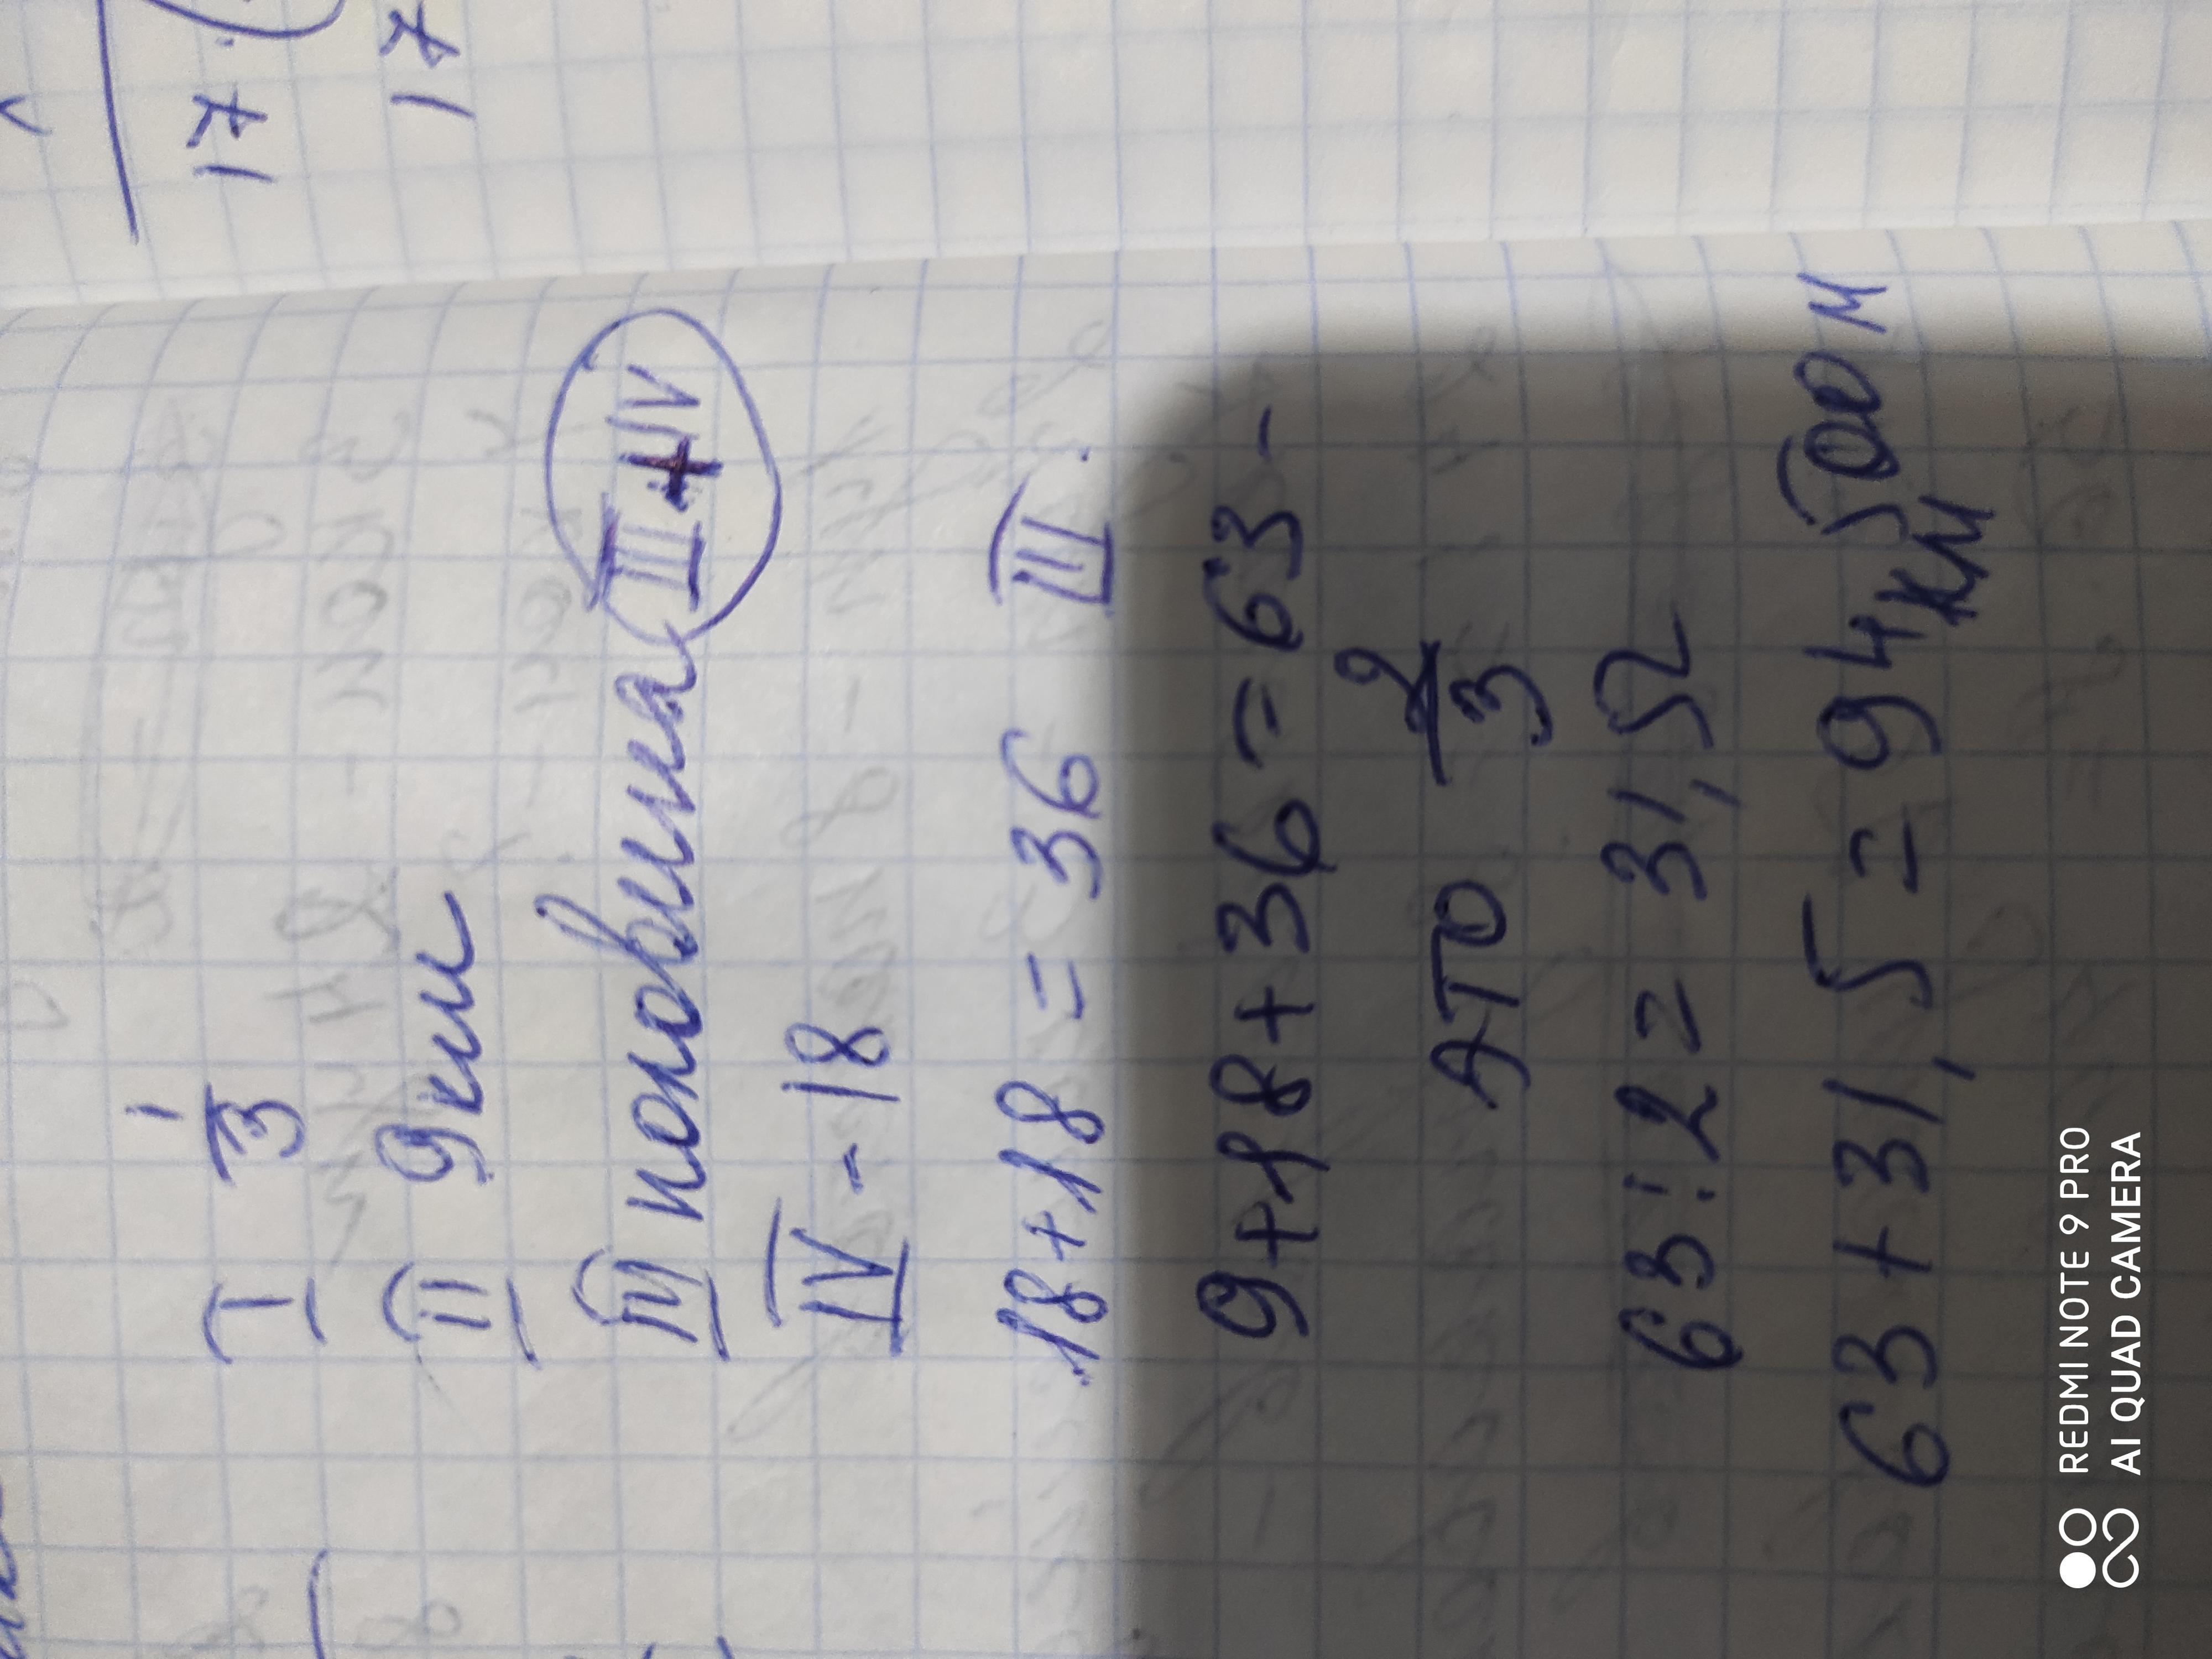 17
17
I 1/3
II 9км
III половина III+IV
IV - 18
18+18 = 36 III
9+18+36 = 63 -
это 2/3
63 : 2 = 31,5
63 + 31,5 = 94км 500м
REDMI NOTE 9 PRO
AI QUAD CAMERA